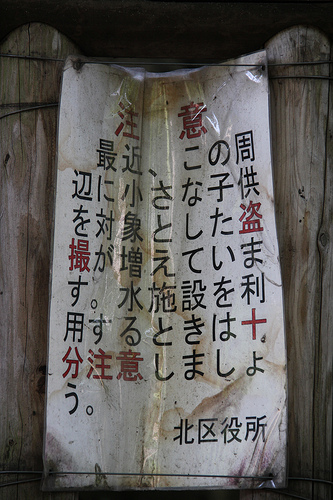 注意
最近、この周
辺に小さな子供
を対象とした盗
撮が増えていま
す。水施設を利
用するときは十
分注意しましょ
う。
北区役所